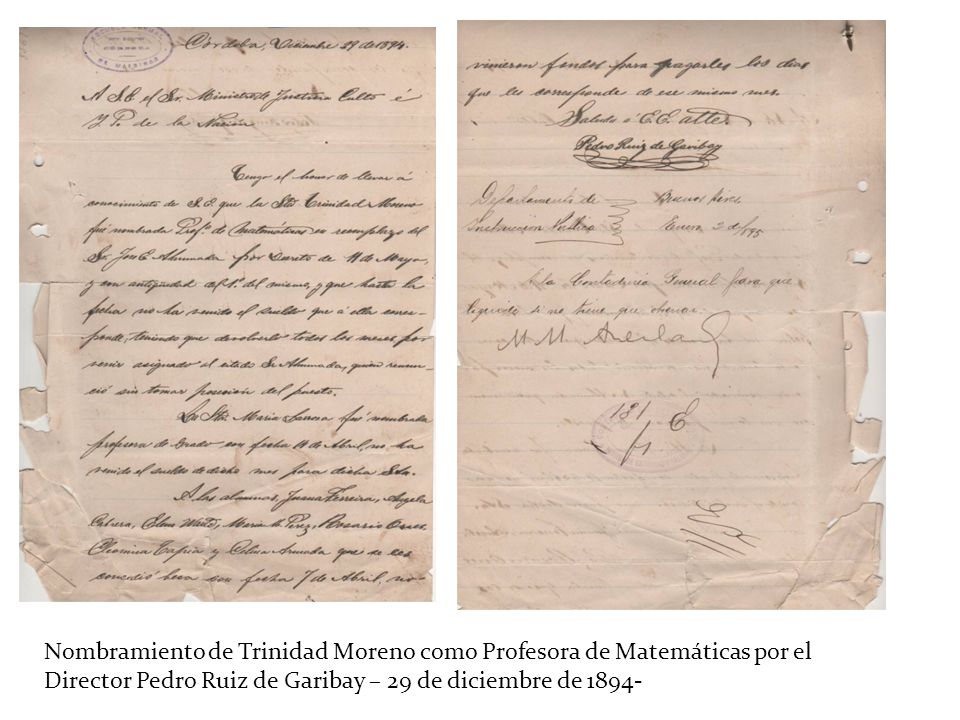 ESCUELA NORMAL
DE MAESTRAS
Córdoba, Diciembre 29 de 1894.
A S.E. el Sr. Ministro de Justicia Culto é
I. P. de la Nación
Tengo el honor de llevar á
conocimiento de S.E. que la Sta Trinidad Moreno
fué nombrada Prof.a de Matemáticas en reemplazo del
Sr. José E. Ahumada por decreto de 11 de Mayo,
y con antigüedad del 1º. del mismo, y que hasta la
fecha no ha venido el sueldo que á ella corres-
ponde, teniendo que devolverlo todos los meses por
venir asignado al citado Sr Ahumada, quien renun-
ció sin tomar posesión del puesto.
La Sta Maria fué nombrada
profesora de Grado con fecha 11 de Abril, no ha
venido el sueldo de dicho mes para dicha Sta.
A las alumnas, Juana Ferreira, Angela
Cabrera, Elena Maria Rosario
Tapia y Celina que se les
concedió beca con fecha 7 de Abril, no
vinieron fondos para pagarles los dias
que les corresponde de ese mismo mes.
Saluda á S.E. atte.
Pedro Ruiz de Garibay
Departamento de
Instrucción Pública
Buenos Aires
Enero 2 de/895
A la Contaduría General para que
liquide si no tiene que observar.
181
E
Nombramiento de Trinidad Moreno como Profesora de Matemáticas por el
Director Pedro Ruiz de Garibay – 29 de diciembre de 1894-